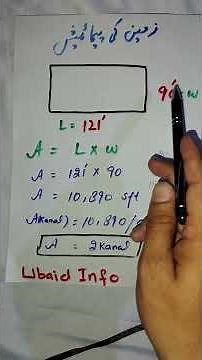 زمین کی پیمائش
90' = w
L = 121'
A = L x w
A = 121' x 90
A = 10,890 sft
A(Kanal) = 10,890/
A = 2 Kanal
Ubaid Info